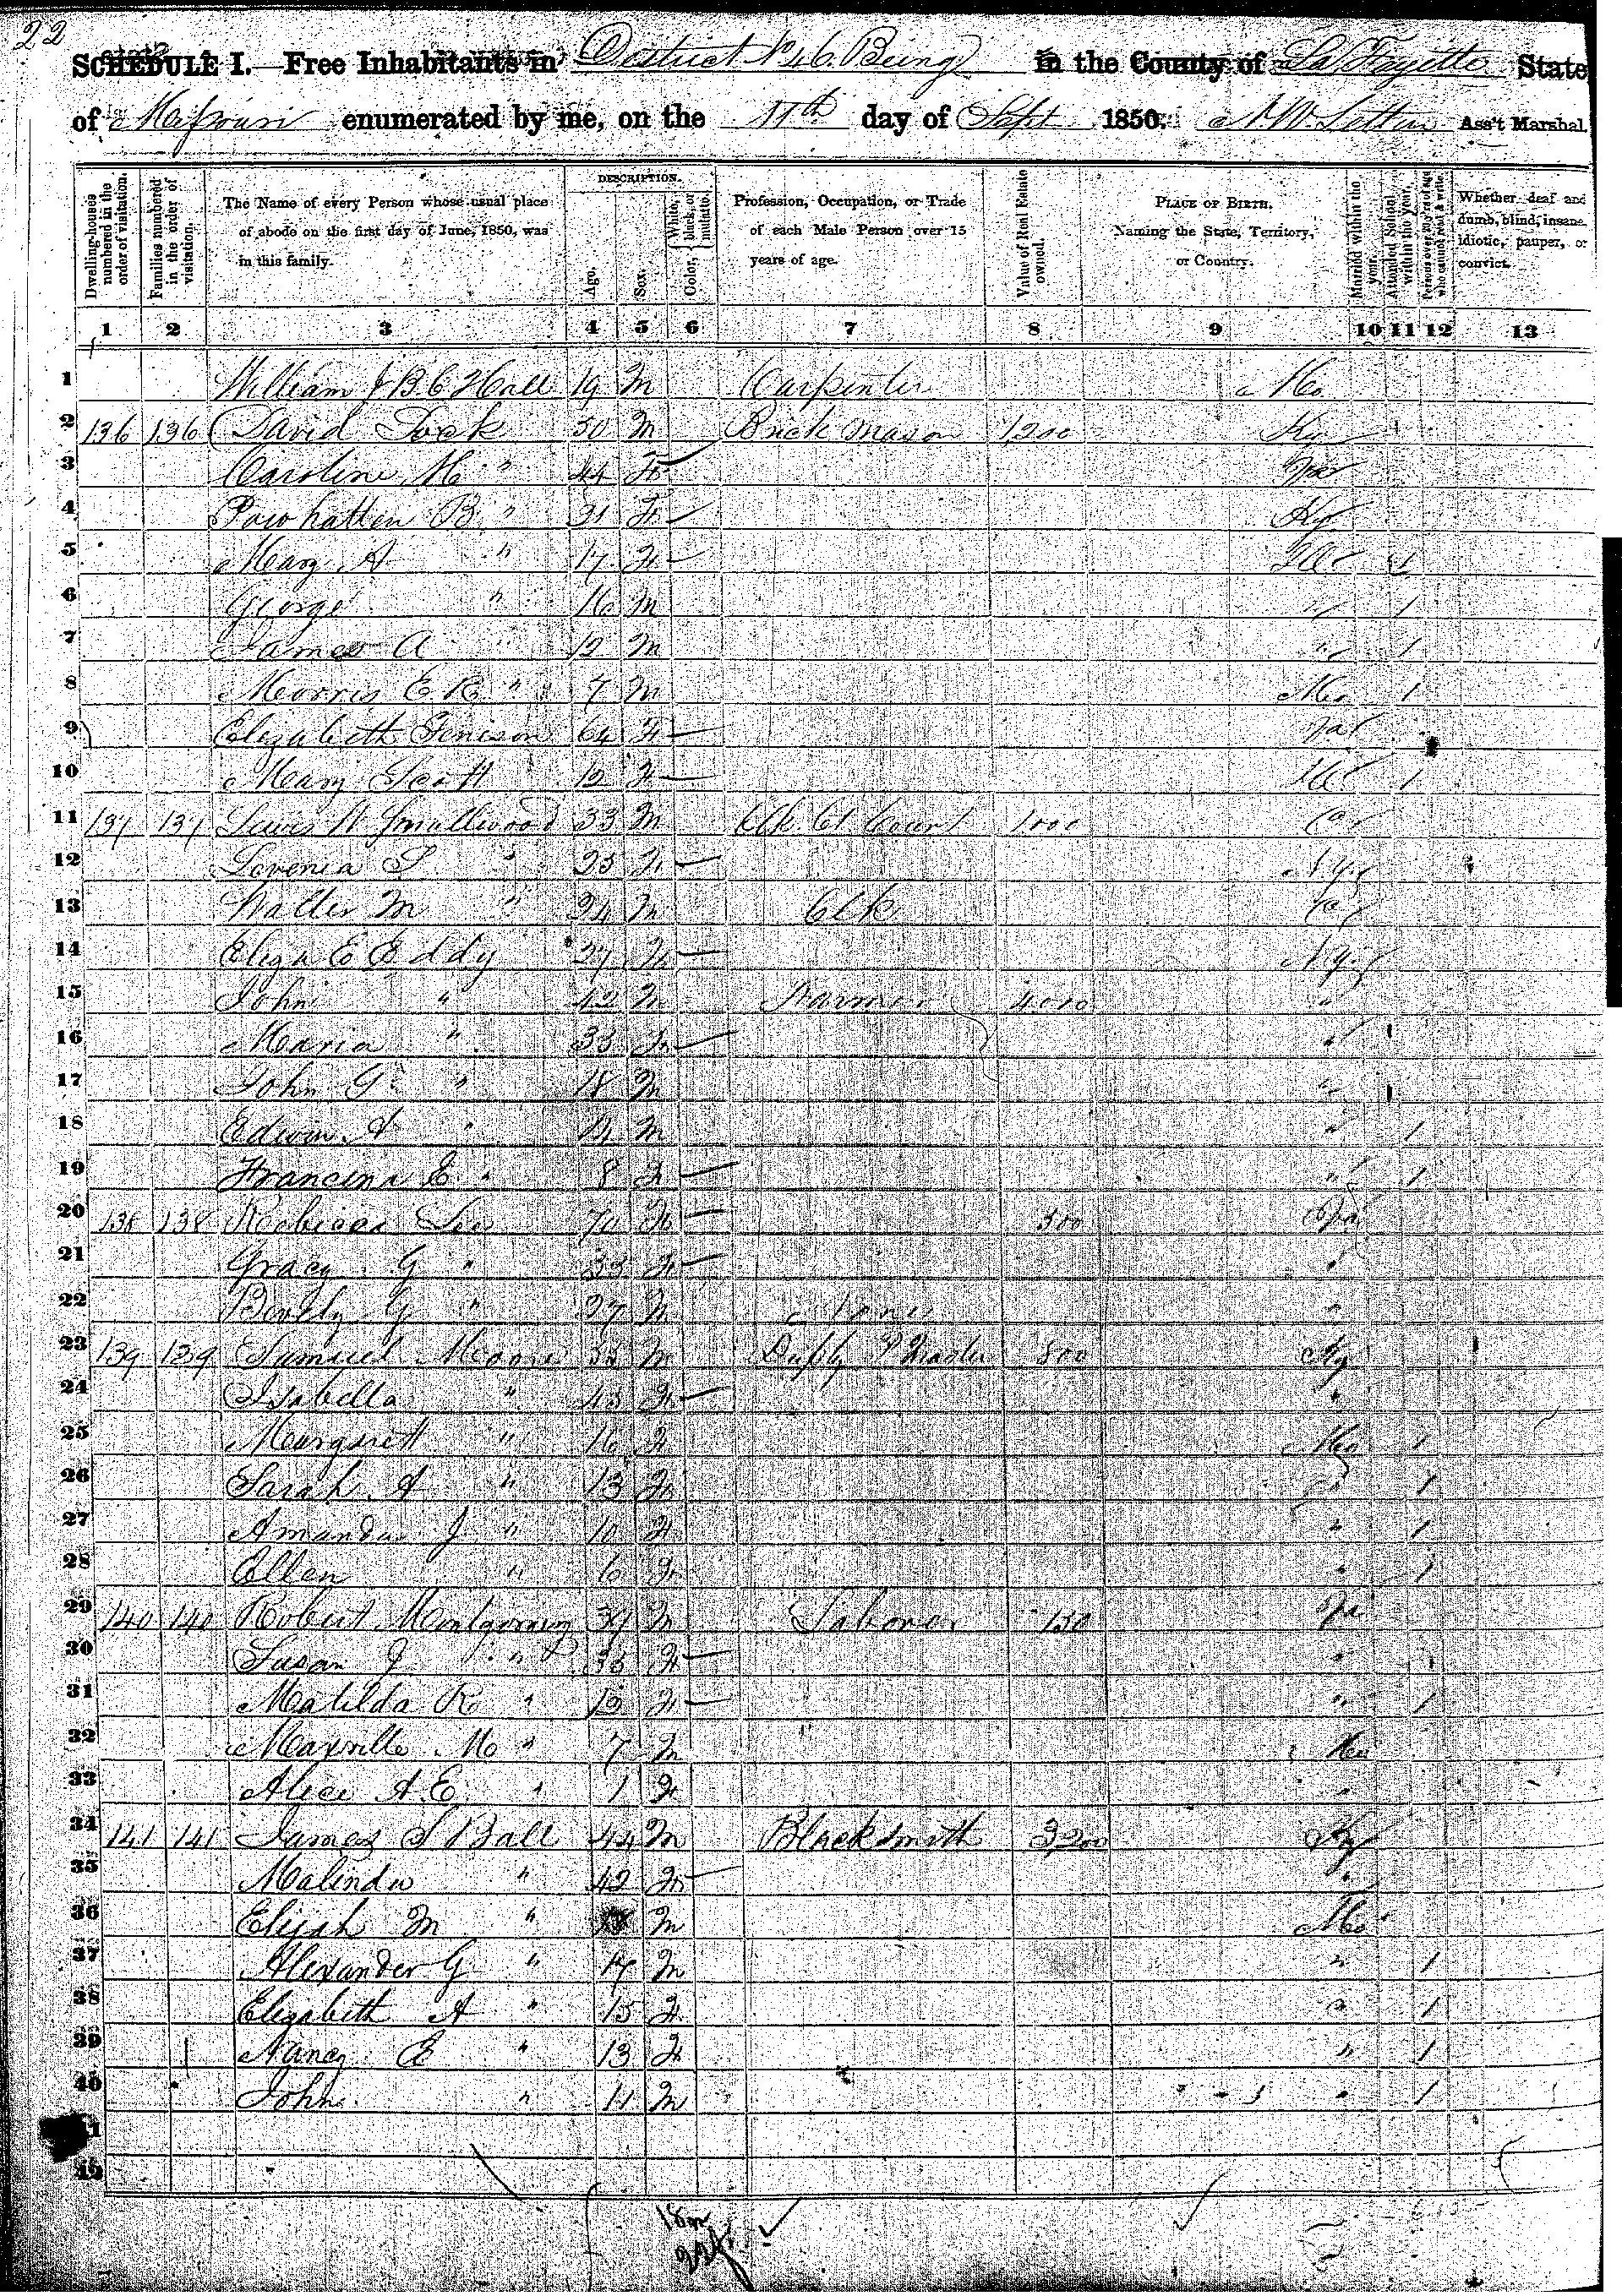 22
SCHEDULE I. Free Inhabitants in District No 46 Being in the County of La Fayette State
of Missouri enumerated by me, on the 11th day of Sept 1850. Ass't Marshal.
Dwelling-houses numbered in the order of visitation.
Families numbered in the order of visitation.
The Name of every Person whose usual place of abode on the first day of June, 1850, was in this family.
DESCRIPTION.
Age.
Sex.
Color, White, black, or mulatto.
Profession, Occupation, or Trade of each Male Person over 15 years of age.
Value of Real Estate owned.
PLACE OF BIRTH. Naming the State, Territory, or Country.
Married within the year.
Attended School within the year.
Persons over 20 y'rs of age who cannot read & write.
Whether deaf and dumb, blind, insane, idiotic, pauper, or convict.
1 2 3 4 5 6 7 8 9 10 11 12 13
1 William J B C Hall 19 M Carpenter Mo
2 136 136 David 50 M Brick Mason 1200 Ky
3 Caroline M " 44 F
4 Powhatten B " 21 F Ky
5 Mary A " 17 F Ill 1
6 George " 16 M " 1
7 James A " 12 M " 1
8 Morris E R " 7 M Mo 1
9 Elizabeth 64 F Va
10 Mary Scott 12 F Ill 1
11 137 137 Lewis W Smallwood 33 M Clk Ct Court 1000
12 Lovenia S " 25 F N.Y.
13 Walter M " 24 M Clk
14 Eliza E Eddy 27 F N.Y.
15 John " 42 M Farmer 4000 "
16 Maria " 35 F "
17 John G " 18 M "
18 Edwin A " M " 1
19 Francena E " 8 F " 1
20 138 138 Rebecca Lee 70 F 500 Va
21 Gracy G " 33 F "
22 Beverly G " 27 M None "
23 139 139 Samuel Moore M Master 800 Ky
24 Isabella " 43 F "
25 Margarett " 16 F Mo 1
26 Sarah A " 13 F " 1
27 Amanda J " 10 F " 1
28 Ellen " 6 F " 1
29 140 140 Robert Montgomery 39 M Laborer 150 Va
30 Susan J " 35 F "
31 Matilda R " 12 F " 1
32 Maxville M " 7 M Mo
33 Alice A.E. " 1 F "
34 141 141 James S Ball 44 M Blacksmith 3200 Ky
35 Malinda " 42 F "
36 Elijah M " M Mo
37 Alexander G " 17 M " 1
38 Elizabeth A " 15 F " 1
39 Nancy E " 13 F " 1
40 John " 11 M " 1
41
42
18m
22f